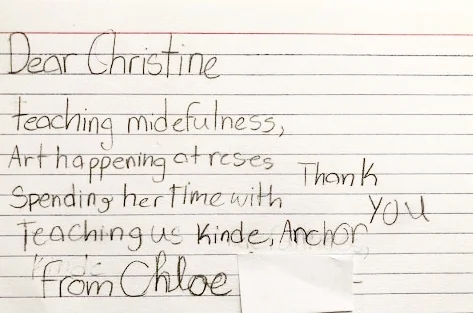 Dear Christine
teaching midefulness,
Art happening at reses
Thank
Spending her time with
You
Teaching us Kinde, Anchor
From Chloe